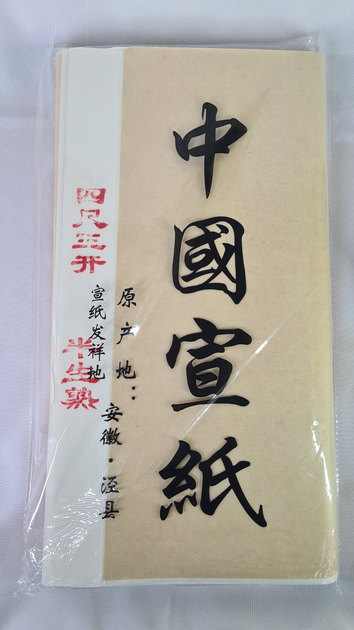 中國宣紙
原产地：安徽·泾县
宣纸发祥地
四尺三开
半生熟